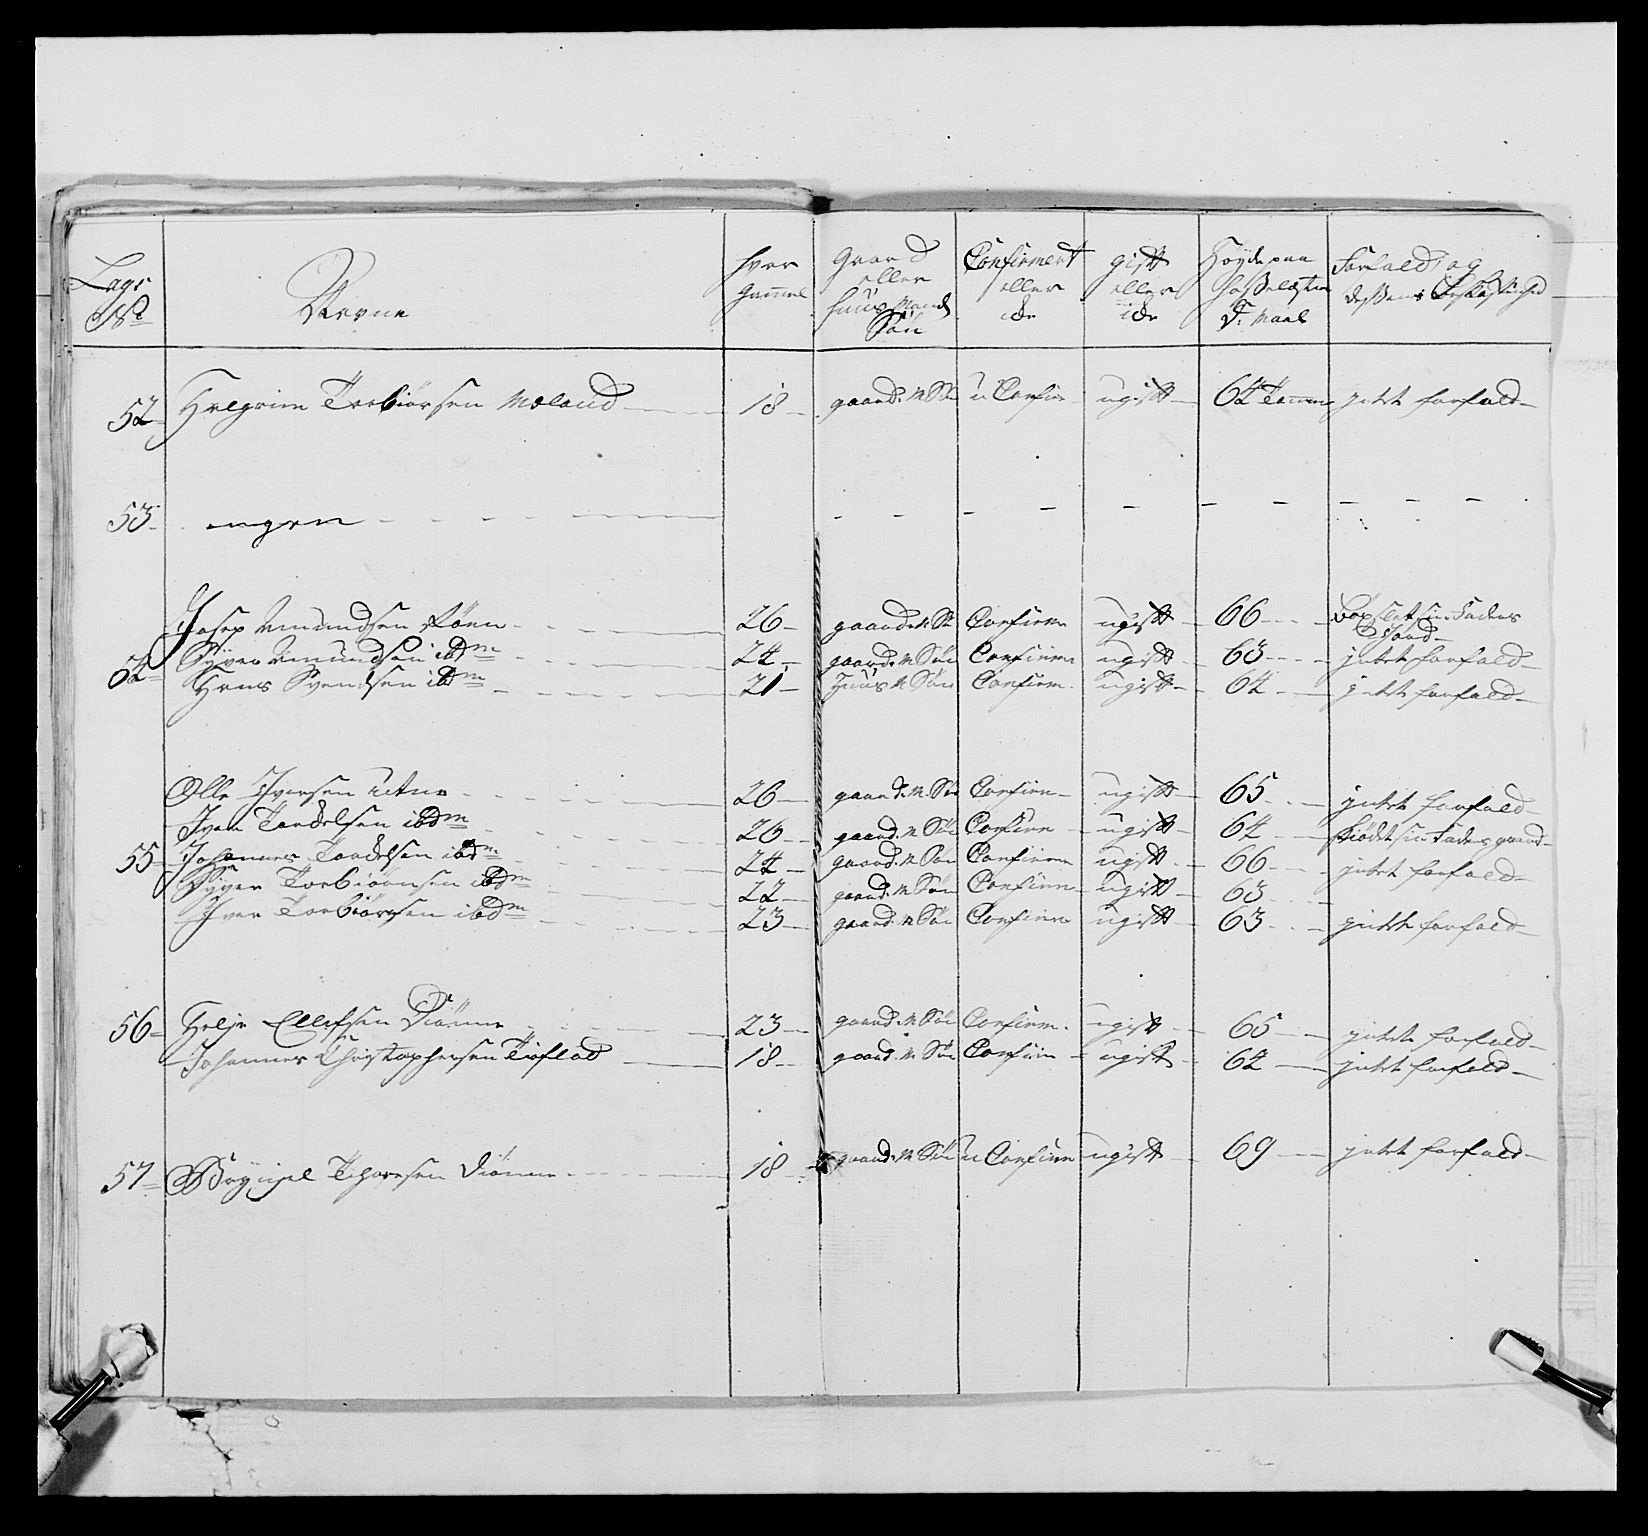 Lags No | Navne | hvor Gammel | Gaard eller Huus Mands Søn | Confirmert eller ide | gift eller ide | Høyde paa Tr: Maal | Forfald og dessens Beskaffenhed
52 Helgrim Torbiørsen Moland 18 gaard: M Søn u Confirm ugift 64 Tommer intet forfald
53 ingen
Josep Amundsen Røen 26 gaard: M Søn Confirm ugift 66 sin Faders Jord
Syver Amundsen ibdm 24 gaard: M Søn Confirm ugift 63 intet forfald
54 Hans Svendsen ibdm 21 Huus M Søn Confirm ugift 64 intet forfald
Olle Iversen 26 gaard: M Søn Confirm ugift 65 intet forfald
Iver Tordelsen ibdm 26 gaard: M Søn Confirm ugift 64 sin Faders gaard
55 Johannes Tordelsen ibdm 24 gaard: M Søn Confirm ugift 66 intet forfald
Syver Torbiørnsen ibdm 22 gaard: M Søn Confirm ugift 63
Iver Torbiørnsen ibdm 23 gaard: M Søn Confirm ugift 63 intet forfald
56 Helje Ellefsen Diønne 23 gaard: M Søn Confirm ugift 65 intet forfald
Johannes Christophersen Tioflad 18 gaard: M Søn Confirm ugift 64 intet forfald
57 Thoresen Diønne 18 gaard: M Søn u Confirm ugift 69 intet forfald